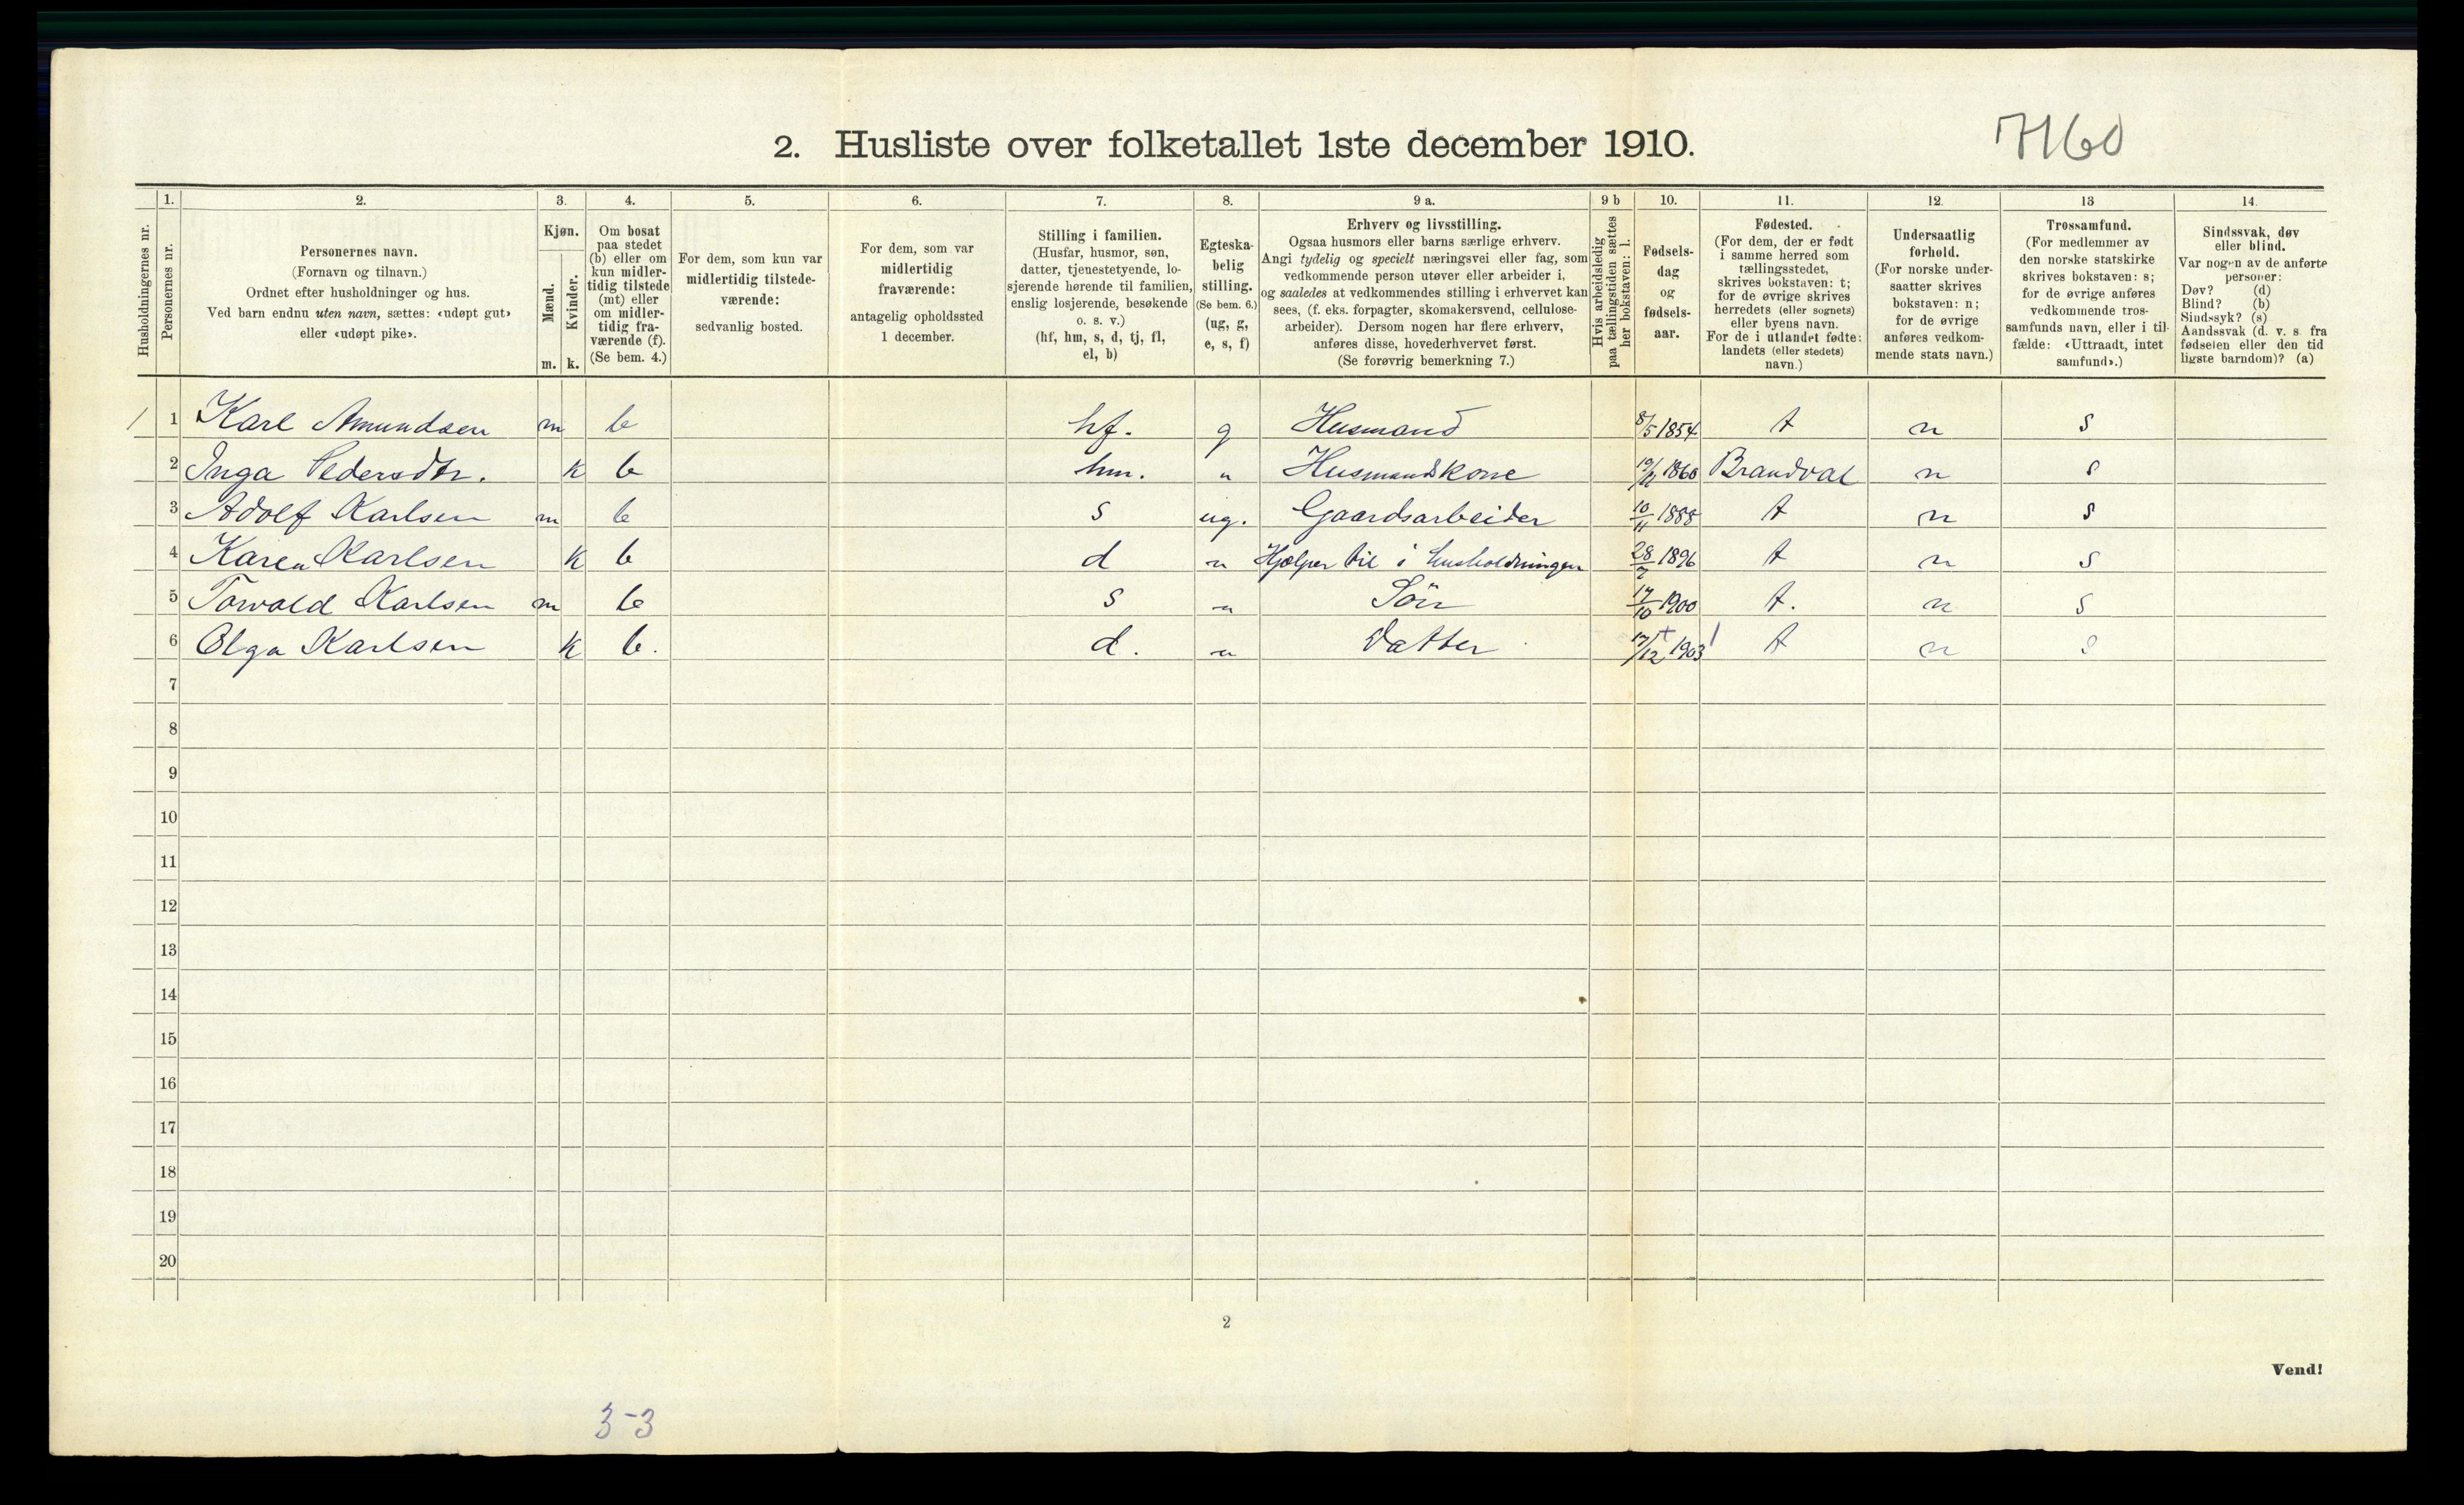 2. Husliste over folketallet 1ste december 1910.
7160
Husholdningernes nr.
1.
Personernes nr.
2.
Personernes navn.
(Fornavn og tilnavn.)
Ordnet efter husholdninger og hus.
Ved barn endnu uten navn, sættes: «udøpt gut»
eller «udøpt pike».
3.
Kjøn.
Mænd.
Kvinder.
m. k.
4.
Om bosat
paa stedet
(b) eller om
kun midler-
tidig tilstede
(mt) eller
om midler-
tidig fra-
værende (f).
(Se bem. 4.)
5.
For dem, som kun var
midlertidig tilstede-
værende:
sedvanlig bosted.
6.
For dem, som var
midlertidig
fraværende:
antagelig opholdssted
1 december.
7.
Stilling i familien.
(Husfar, husmor, søn,
datter, tjenestetyende, lo-
sjerende hørende til familien,
enslig losjerende, besøkende
o. s. v.)
(hf, hm, s, d, tj, fl,
el, b)
8.
Egteska-
belig
stilling.
(Se bem. 6.)
(ug, g,
e, s, f)
9 a.
Erhverv og livsstilling.
Ogsaa husmors eller barns særlige erhverv.
Angi tydelig og specielt næringsvei eller fag, som
vedkommende person utøver eller arbeider i,
og saaledes at vedkommendes stilling i erhvervet kan
sees, (f. eks. forpagter, skomakersvend, cellulose-
arbeider). Dersom nogen har flere erhverv,
anføres disse, hovederhvervet først.
(Se forøvrig bemerkning 7.)
9 b
Hvis arbeidsledig
paa tællingstiden sættes
her bokstaven: l.
10.
Fødsels-
dag
og
fødsels-
aar.
11.
Fødested.
(For dem, der er født
i samme herred som
tællingsstedet,
skrives bokstaven: t;
for de øvrige skrives
herredets (eller sognets)
eller byens navn.
For de i utlandet fødte:
landets (eller stedets)
navn.)
12.
Undersaatlig
forhold.
(For norske under-
saatter skrives
bokstaven: n;
for de øvrige
anføres vedkom-
mende stats navn.)
13
Trossamfund.
(For medlemmer av
den norske statskirke
skrives bokstaven: s;
for de øvrige anføres
vedkommende tros-
samfunds navn, eller i til-
fælde: «Uttraadt, intet
samfund».)
14.
Sindssvak, døv
eller blind.
Var nogen av de anførte
personer:
Døv? (d)
Blind? (b)
Sindssyk? (s)
Aandssvak (d. v. s. fra
fødselen eller den tid
ligste barndom)? (a)
1 Karl Amundsen m b hf. g Husmand 8/5 1854 t n s
2 Inga Pedersdtr. k b hm. " Husmandskone 1860 Brandval n s
3 Adolf Karlsen m b s ug. Gaardsarbeider 10/11 1888 t n s
4 Karen Karlsen k b d " Hjælper til i husholdningen 28/7 1896 t n s
5 Torvald Karlsen m b s " Sön 17/10 1900 t. n s
6 Olga Karlsen k b. d. " Datter 17/12 1903 t n s
7
8
9
10
11
12
13
14
15
16
17
18
19
20
2
Vend!
3-3